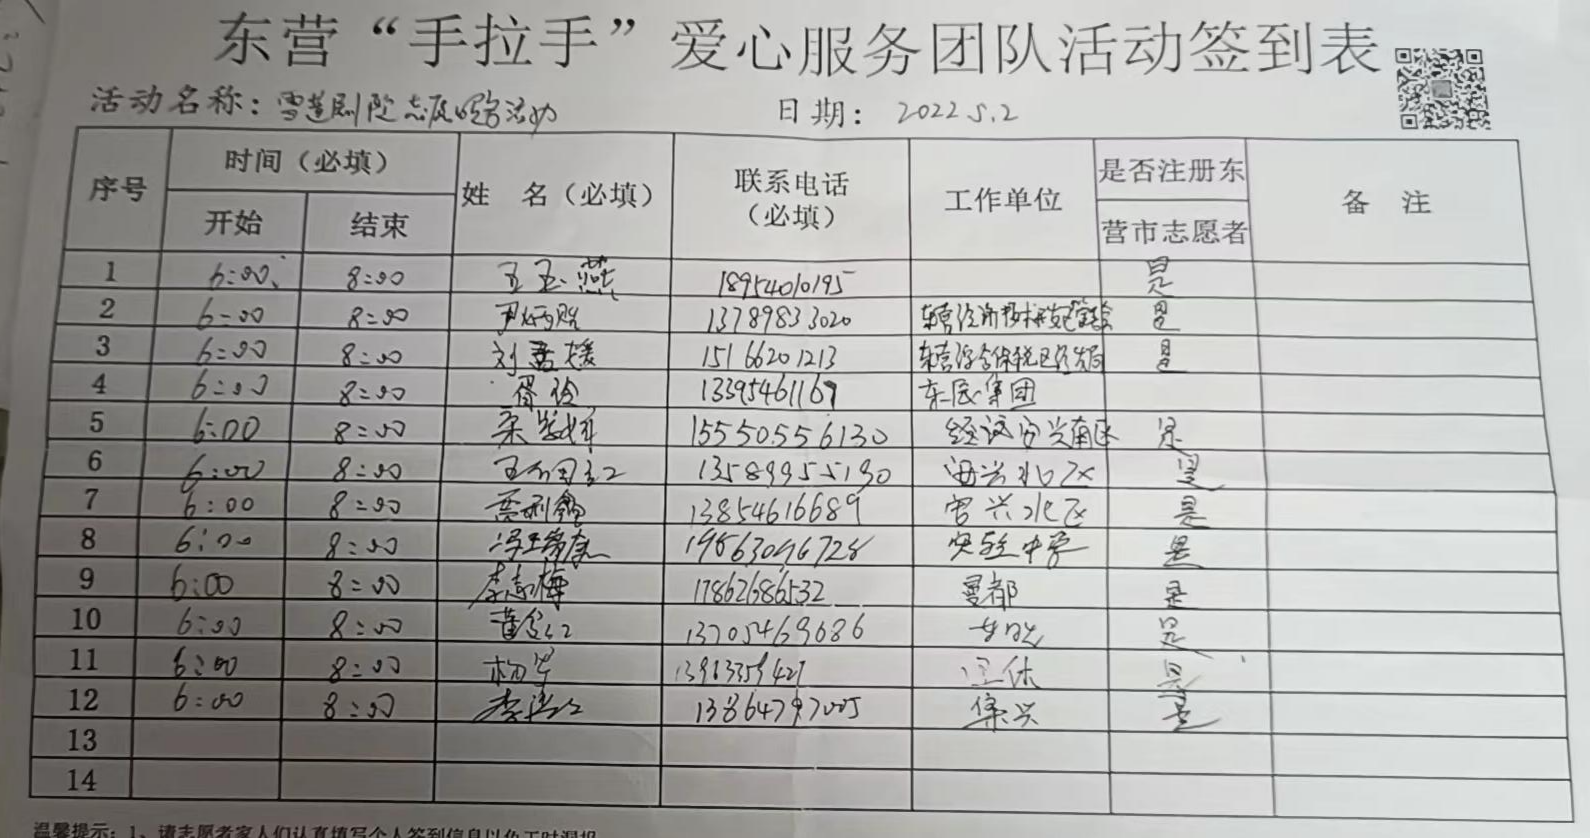 东营“手拉手”爱心服务团队活动签到表
活动名称：雪莲剧院志愿服务活动 日期：2022.5.2
序号 时间（必填） 姓 名（必填） 联系电话（必填） 工作单位 是否注册东营市志愿者 备 注
开始 结束
1 6:00 8:00 王玉燕 18954010195 是
2 6:00 8:00 13789833020 是
3 6:00 8:00 刘 媛 15166201213 是
4 6:00 8:00 13395461169 东辰集团
5 6:00 8:00 15550556130 是
6 6:00 8:00 13589955190 北区 是
7 6:00 8:00 13854616689 兴北区 是
8 6:00 8:00 19863096728 实验中学 是
9 6:00 8:00 李 梅 17862686532 曼都 是
10 6:00 8:00 黄 13705469686 是
11 6:00 8:00 杨 13963359427 休 是
12 6:00 8:00 李 13864797005 是
13
14
温馨提示：1、请志愿者家人们认真填写个人签到信息以免工时漏报